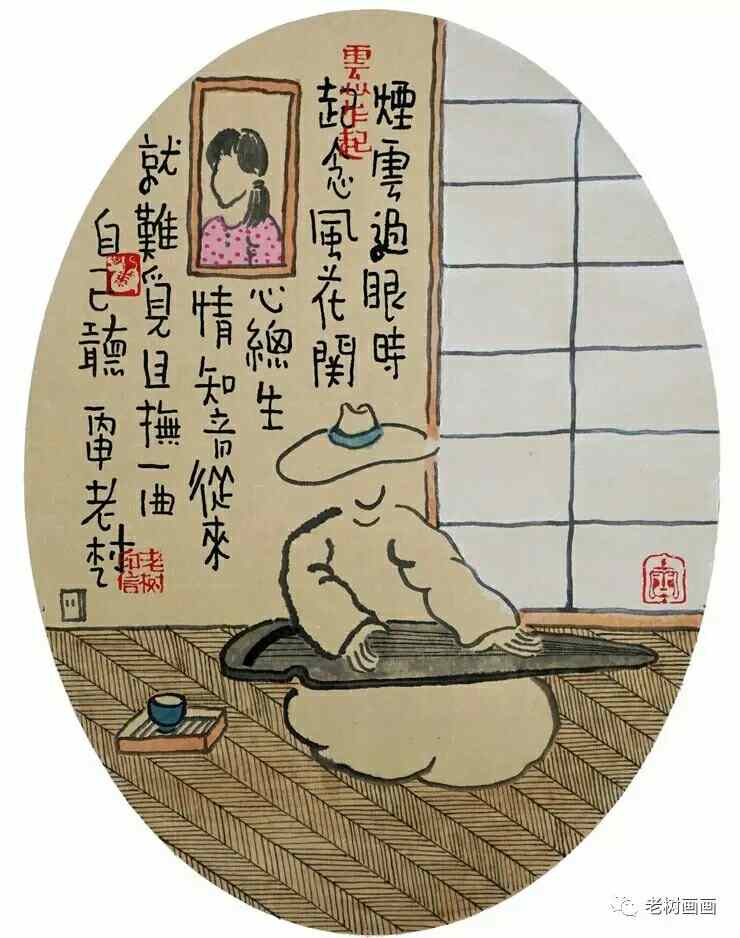 煙雲過眼時
起念風花関
心總生
情知音從來
就難覓且撫一曲
自己聽 丙申老树
老树印信
老树画画